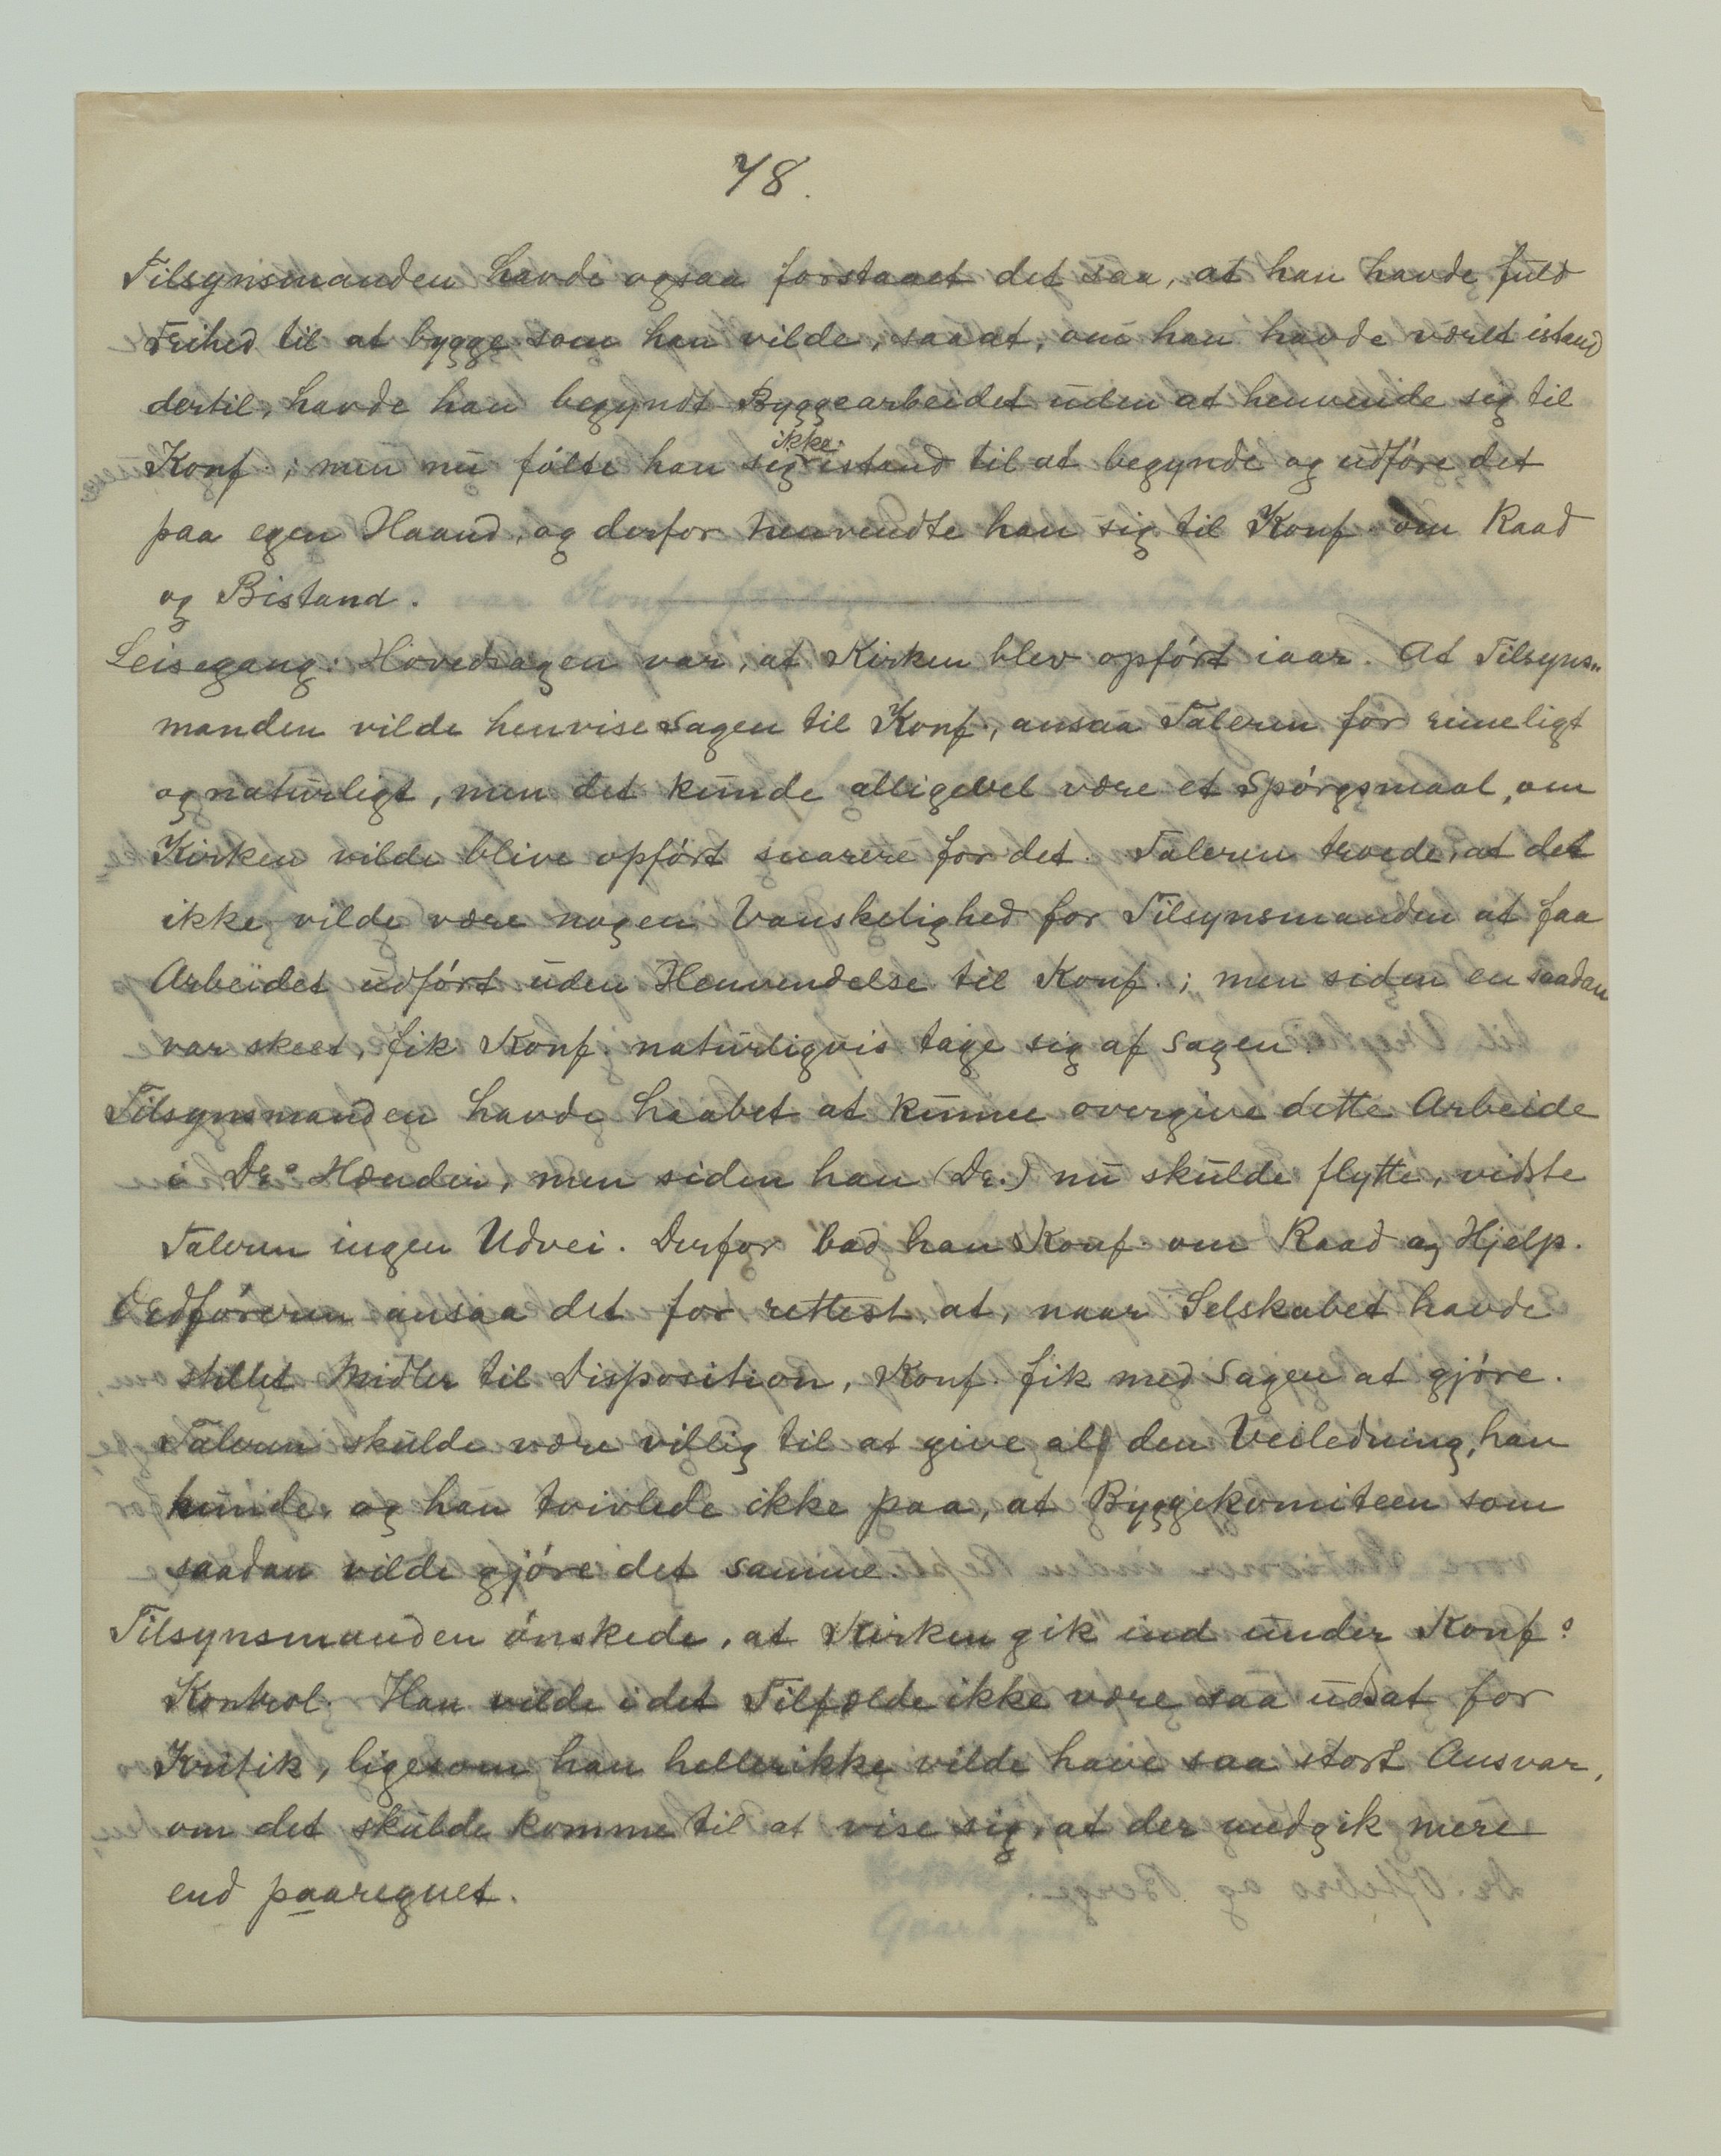 78.
Tilsynsmanden havde ogsaa forstaaet det saa, at han havde fuld
Frihed til at bygge som han vilde, saaat, om han havde været istand
dertil, havde han begyndt Byggearbeidet uden at henvende sig til
Konf.; men nu fölte han sig ikke istand til at begynde og udföre det
paa egen Haand, og derfor henvendte han sig til Konf. om Raad
og Bistand.
Leisegang: Hovedsagen var, at Kirken blev opfört iaar. At Tilsyns„
manden vilde henvise Sagen til Konf., ansaa Taleren for rimeligt
og naturligt, men det kunde alligevel være et Spörgsmaal, om
Kirken vilde blive opfört snarere for det. Taleren troede, at det
ikke vilde være nogen Vanskelighed for Tilsynsmanden at faa
Arbeidet udfört uden Henvendelse til Konf.; men siden en saadan
var skeet, fik Konf. naturligvis tage sig af Sagen.
Tilsynsmanden havde haabet at kunne overgive dette Arbeide
i Drs Hænder, men siden han (Dr.) nu skulde flytte, vidste
Taleren ingen Udvei. Derfor bad han Konf. om Raad og Hjelp.
Ordföreren ansaa det for rettest, at, naar Selskabet havde
stillet Midler til Disposition, Konf. fik med Sagen at gjöre.
Taleren skulde være villig til at give al den Veiledning, han
kunde, og han tvivlede ikke paa, at Byggekomiteen som
saadan vilde gjöre det samme.
Tilsynsmanden önskede, at Kirken gik ind under Konfs
Kontrol. Han vilde i det Tilfælde ikke være saa udsat for
Kritik, ligesom han heller ikke vilde have saa stort Ansvar,
om det skulde komme til at vise sig, at der medgik mere
end paaregnet.